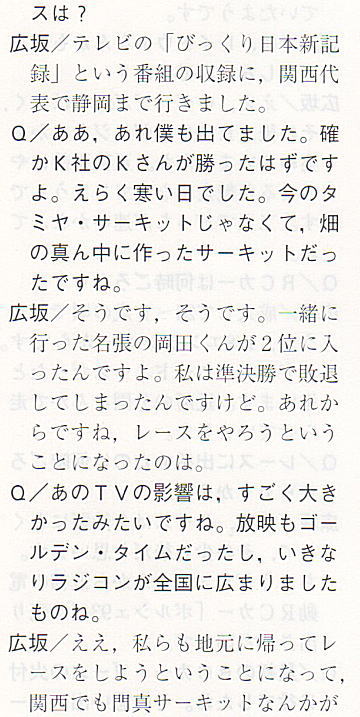 スは？
広坂／テレビの「びっくり日本新記
録」という番組の収録に，関西代
表で静岡まで行きました。
Ｑ／ああ，あれ僕も出てました。確
かＫ社のＫさんが勝ったはずです
よ。えらく寒い日でした。今のタ
ミヤ・サーキットじゃなくて，畑
の真ん中に作ったサーキットだっ
たですね。
広坂／そうです，そうです。一緒に
行った名張の岡田くんが２位に入
ったんですよ。私は準決勝で敗退
してしまったんですけど。あれか
らですね，レースをやろうという
ことになったのは。
Ｑ／あのＴＶの影響は，すごく大き
かったみたいですね。放映もゴー
ルデン・タイムだったし，いきな
りラジコンが全国に広まりました
ものね。
広坂／ええ，私らも地元に帰ってレ
ースをしようということになって，
関西でも門真サーキットなんかが